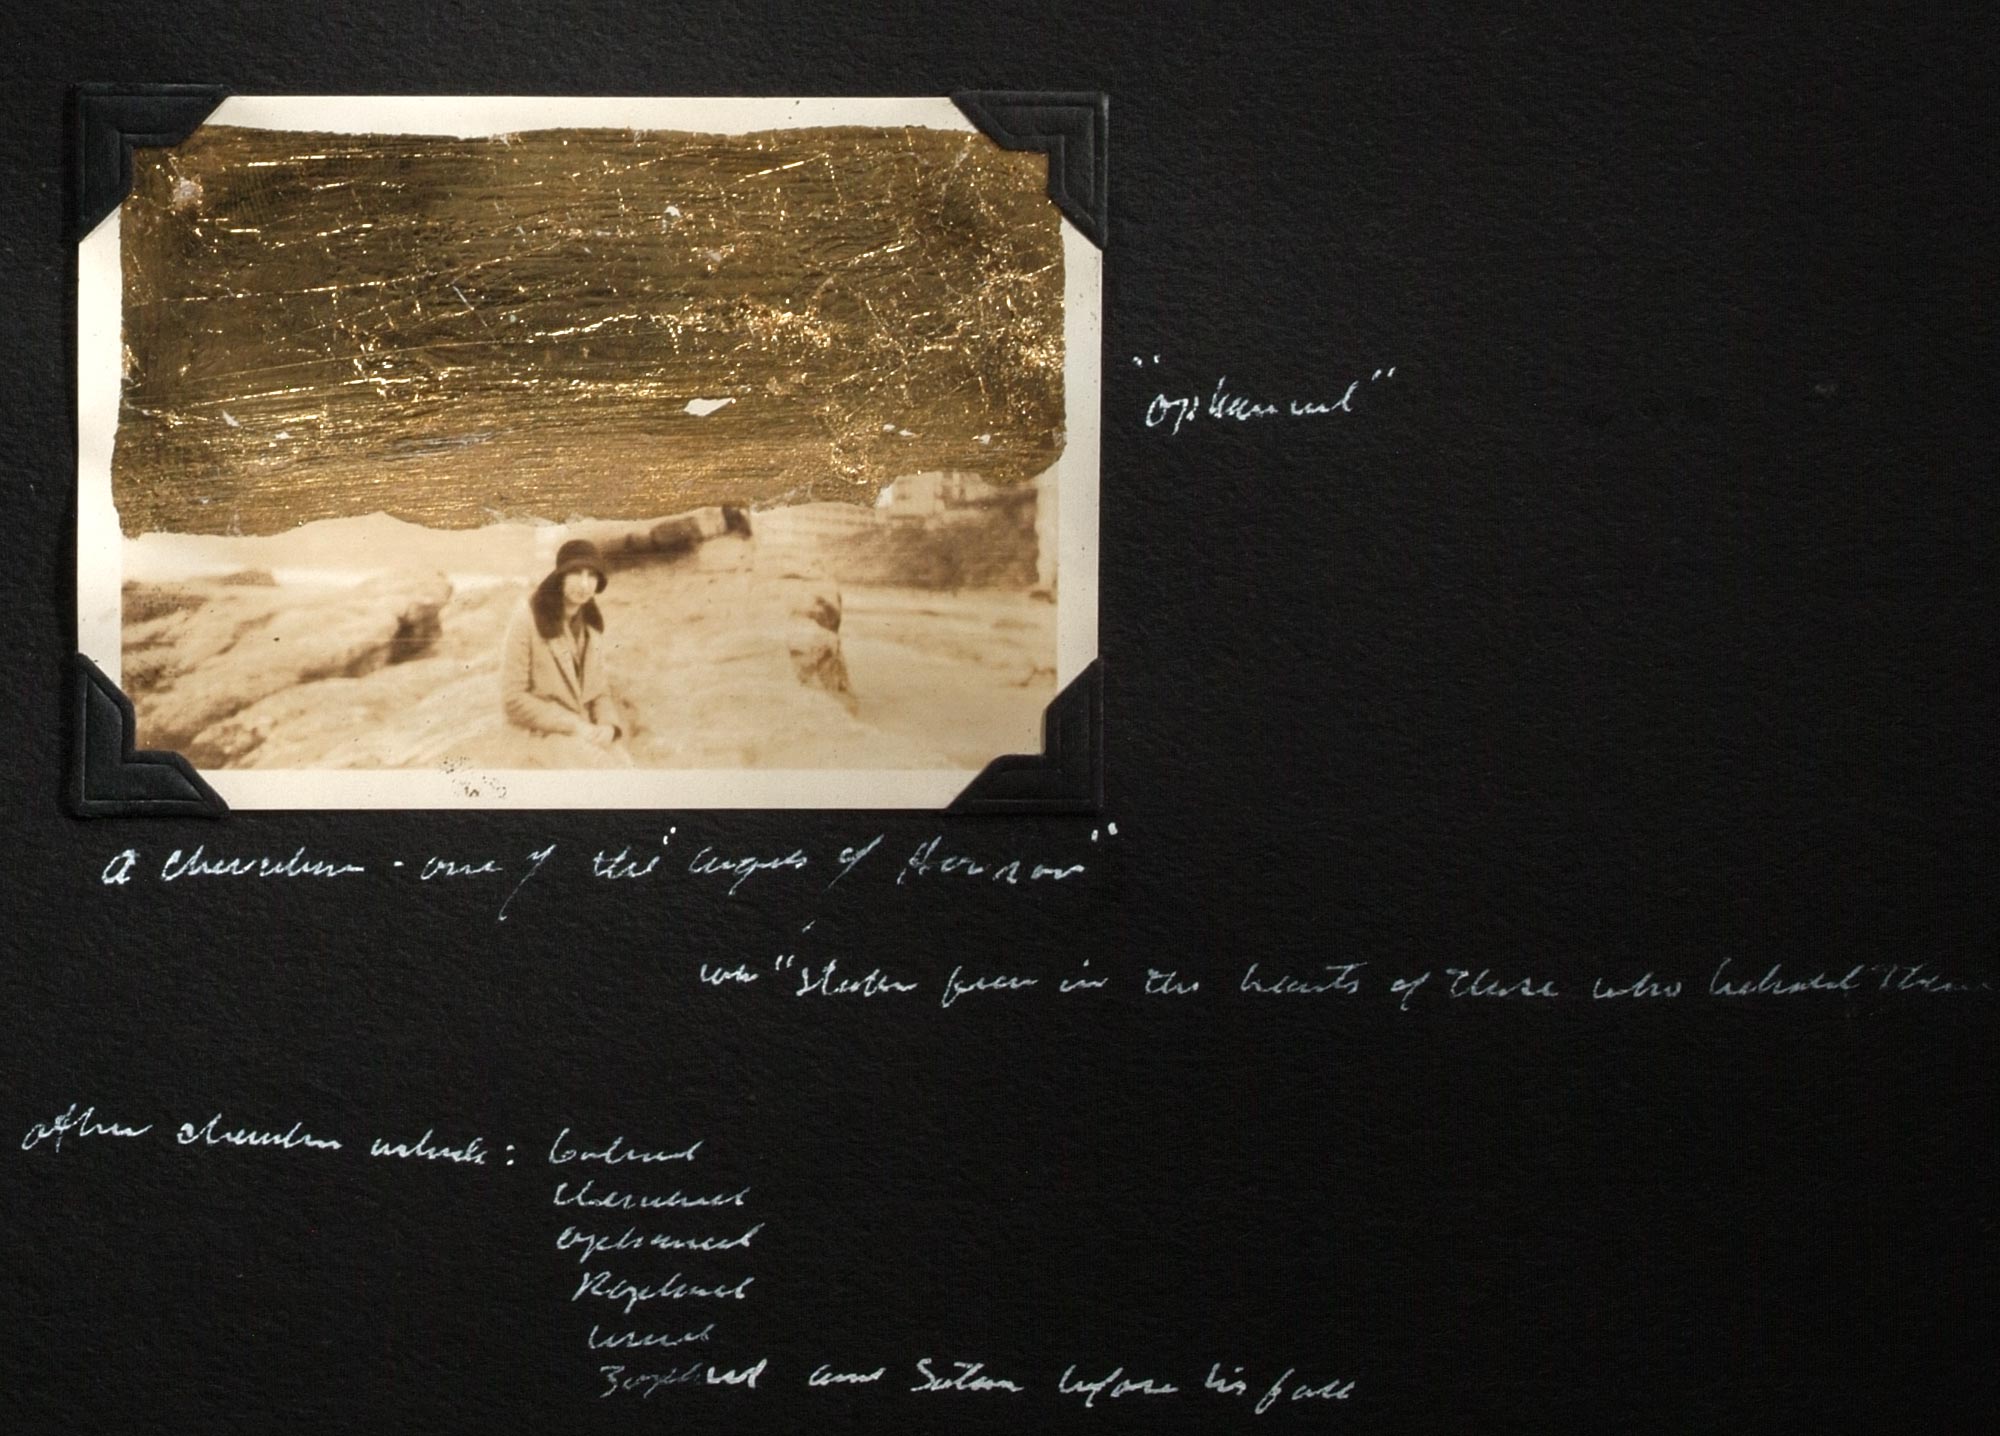 "Ophaniel"
a cherubim - one of the "Angels of Horror"
who "strike fear in the hearts of those who behold them
other cherubim include: Gabriel
Cherubiel
Ophaniel
Raphael
Uriel
Zophiel and Satan before his fall